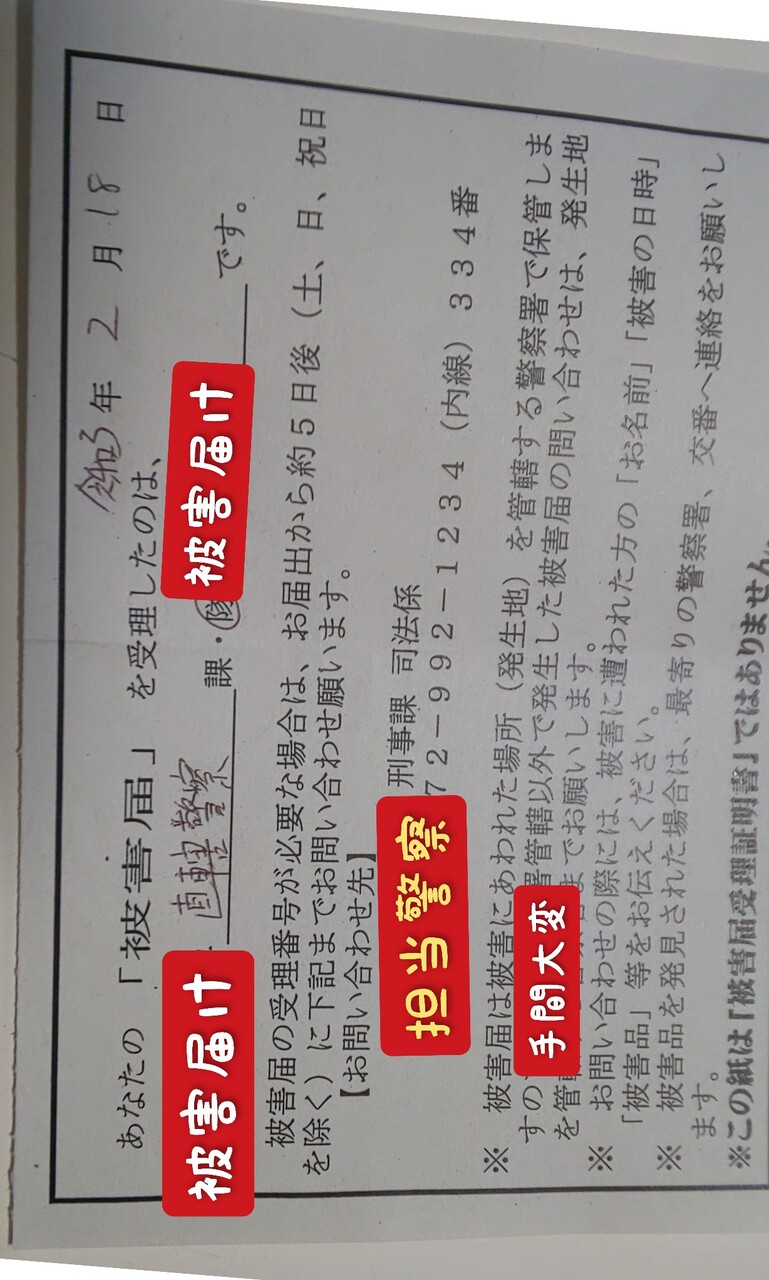 令和3年 2 月 18 日
あなたの「被害届」を受理したのは、
被害届け 直轄警察 課・隊 被害届け です。
被害届の受理番号が必要な場合は、お届出から約5日後(土、日、祝日
を除く)に下記までお問い合わせ願います。
【お問い合わせ先】
担当警察 刑事課 司法係
72-992-1234(内線)334番
※ 被害届は被害にあわれた場所(発生地)を管轄する警察署で保管しま
すの 手間大変 署管轄以外で発生した被害届の問い合わせは、発生地
を管 までお願いします。
※ お問い合わせの際には、被害に遭われた方の「お名前」「被害の日時」
「被害品」等をお伝えください。
※ 被害品を発見された場合は、最寄りの警察署、交番へ連絡をお願いし
ます。
※この紙は「被害届受理証明書」ではありません。